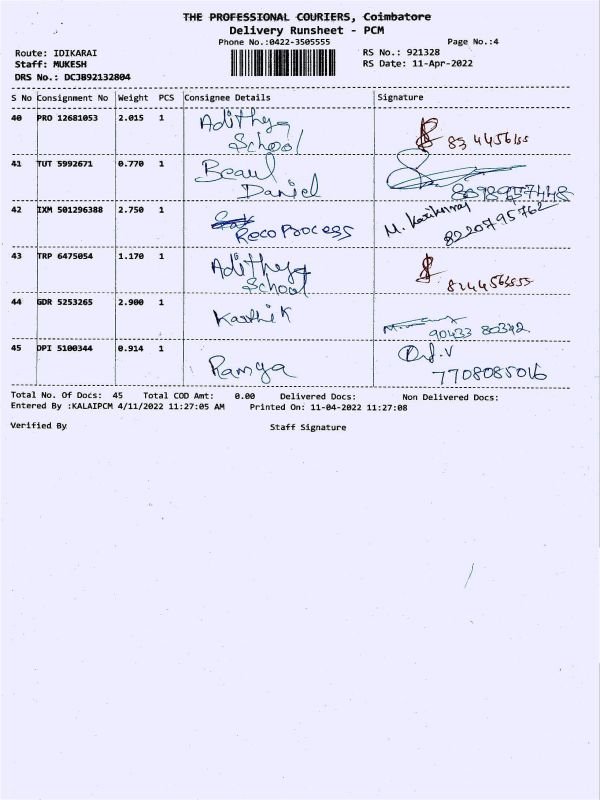 THE PROFESSIONAL COURIERS, Coimbatore
Delivery Runsheet - PCM
Phone No.:0422-3505555 Page No.:4
Route: IDIKARAI RS No.: 921328
Staff: MUKESH RS Date: 11-Apr-2022
DRS No.: DCJ892132804
S No Consignment No Weight PCS Consignee Details Signature
40 PRO 12681053 2.015 1 Adithya
School
41 TUT 5992671 0.770 1 Beaul
Daniel
42 IXM 501296388 2.750 1 Reco Process M. 8220795762
43 TRP 6475054 1.170 1 Adithya
School
44 GDR 5253265 2.900 1 Karthik
90433 80342
45 DPI 5100344 0.914 1 Ramya
7708085016
Total No. Of Docs: 45 Total COD Amt: 0.00 Delivered Docs: Non Delivered Docs:
Entered By :KALAIPCM 4/11/2022 11:27:05 AM Printed On: 11-04-2022 11:27:08
Verified By Staff Signature